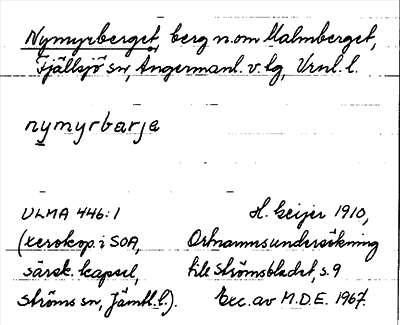 Nymyrberget, berg n. om Malmberget,
Fjällsjö sn, Ångermanl. v. lg, Vrnl. l.
nymyrbarja
ULMA 446:1
(xerokop. i SOA,
särsk. kapsel,
Ströms sn, Jämtl. l.).
H. Geijer 1910,
Ortnamnsundersökning
till Strömsbladet, s. 9
Exc. av M.D.E. 1967.